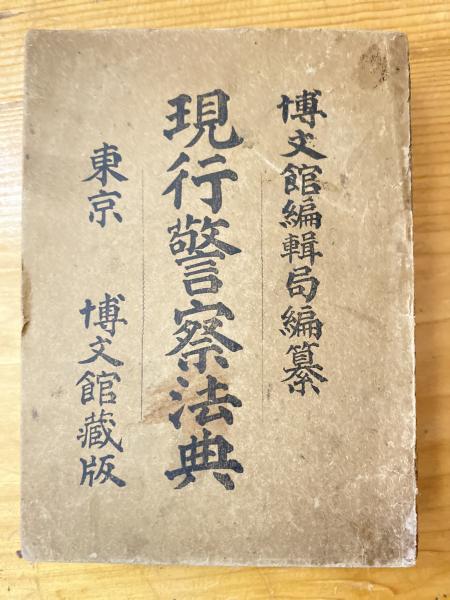 博文館編輯局編纂
現行警察法典
東京 博文館藏版